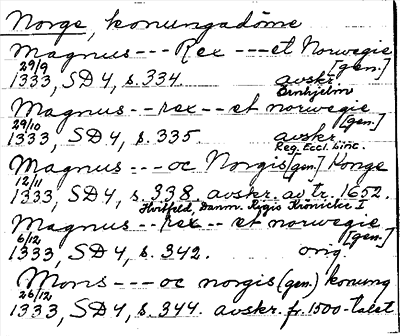 Norge, konungadöme
Magnus --- Rex --- et Norwegie
[gen.]
29/9
1333, SD 4, s. 334. avskr.
Örnhjelm
Magnus -- rex -- et norwegie
[gen.]
29/10
1333, SD 4, s. 335. avskr.
Reg. Eccl. Linc.
Magnus --- oc Norgis [gen.] Konge
12/11
1333, SD 4, s. 338. avskr. av tr. 1652.
Hvitfeld, Danm. Rigis Krönicke I
Magnus -- Rex -- et norwegie
[gen.]
6/12
1333, SD 4, s. 342. orig.
Mons --- oc norgis (gen.) konung
26/12
1333, SD 4, s. 344. avskr. fr. 1500-talet